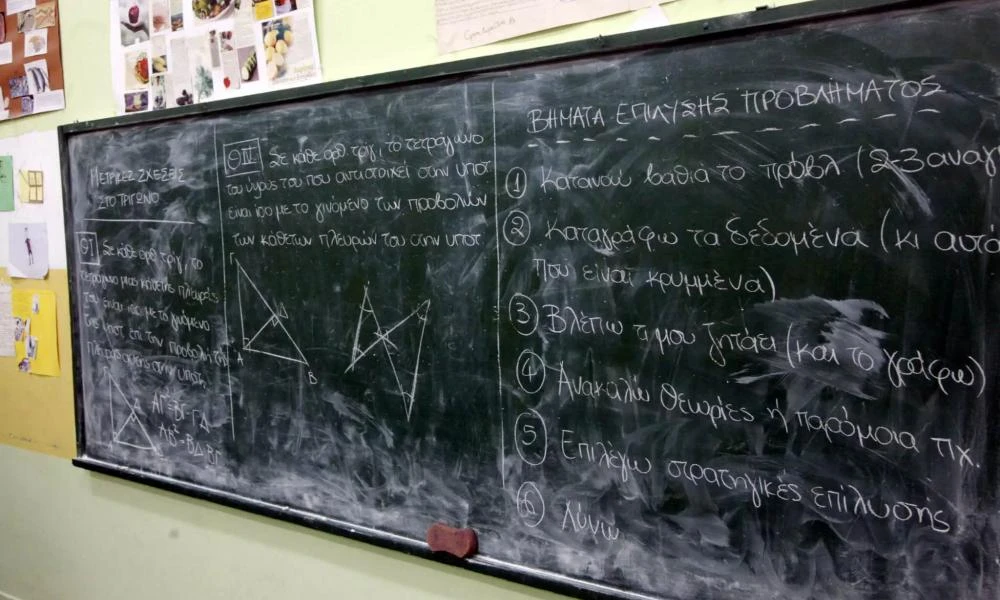 ΜΕΤΡΙΚΕΣ ΣΧΕΣΕΙΣ
ΣΤΟ ΤΡΙΓΩΝΟ
ΘΙ Σε κάθε ορθ τρίγ, το
τετράγωνο μιας κάθετης πλευράς
του είναι ίσο με το γινόμενο
της υποτ επί την προβολή της
πλευράς αυτής στην υποτ.
ΑΓ²=ΒΓ·ΓΔ
ΑΒ²=ΒΔ·ΒΓ
ΘIV Σε κάθε ορθ τρίγ, το τετράγωνο
του ύψους του που αντιστοιχεί στην υποτ
είναι ίσο με το γινόμενο των προβολών
των κάθετων πλευρών του στην υποτ.
Γ
Δ
Α
Β
ΒΗΜΑΤΑ ΕΠΙΛΥΣΗΣ ΠΡΟΒΛΗΜΑΤΟΣ
1 Κατανοώ βαθιά το πρόβλ (2-3 αναγ
2 Καταγράφω τα δεδομένα (κι αυτά
που είναι κρυμμένα)
3 Βλέπω τι μου ζητάει (και το γράφω)
4 Ανακαλώ θεωρίες ή παρόμοια πχ.
5 Επιλέγω στρατηγικές επίλυσης
6 Λύνω